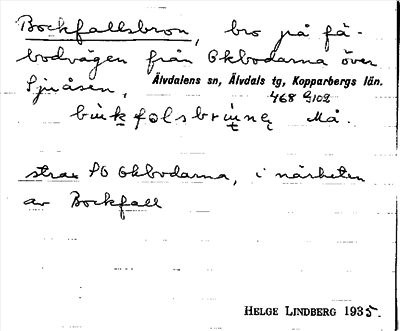 Bockfallsbron, bro på fä-
bodvägen från Okbodarna över
Sjuåsen, Älvdalens sn, Älvdals tg, Kopparbergs län.
468 9102
Må.
strax SO Okbodarna, i närheten
av Bockfall
HELGE LINDBERG 1935.